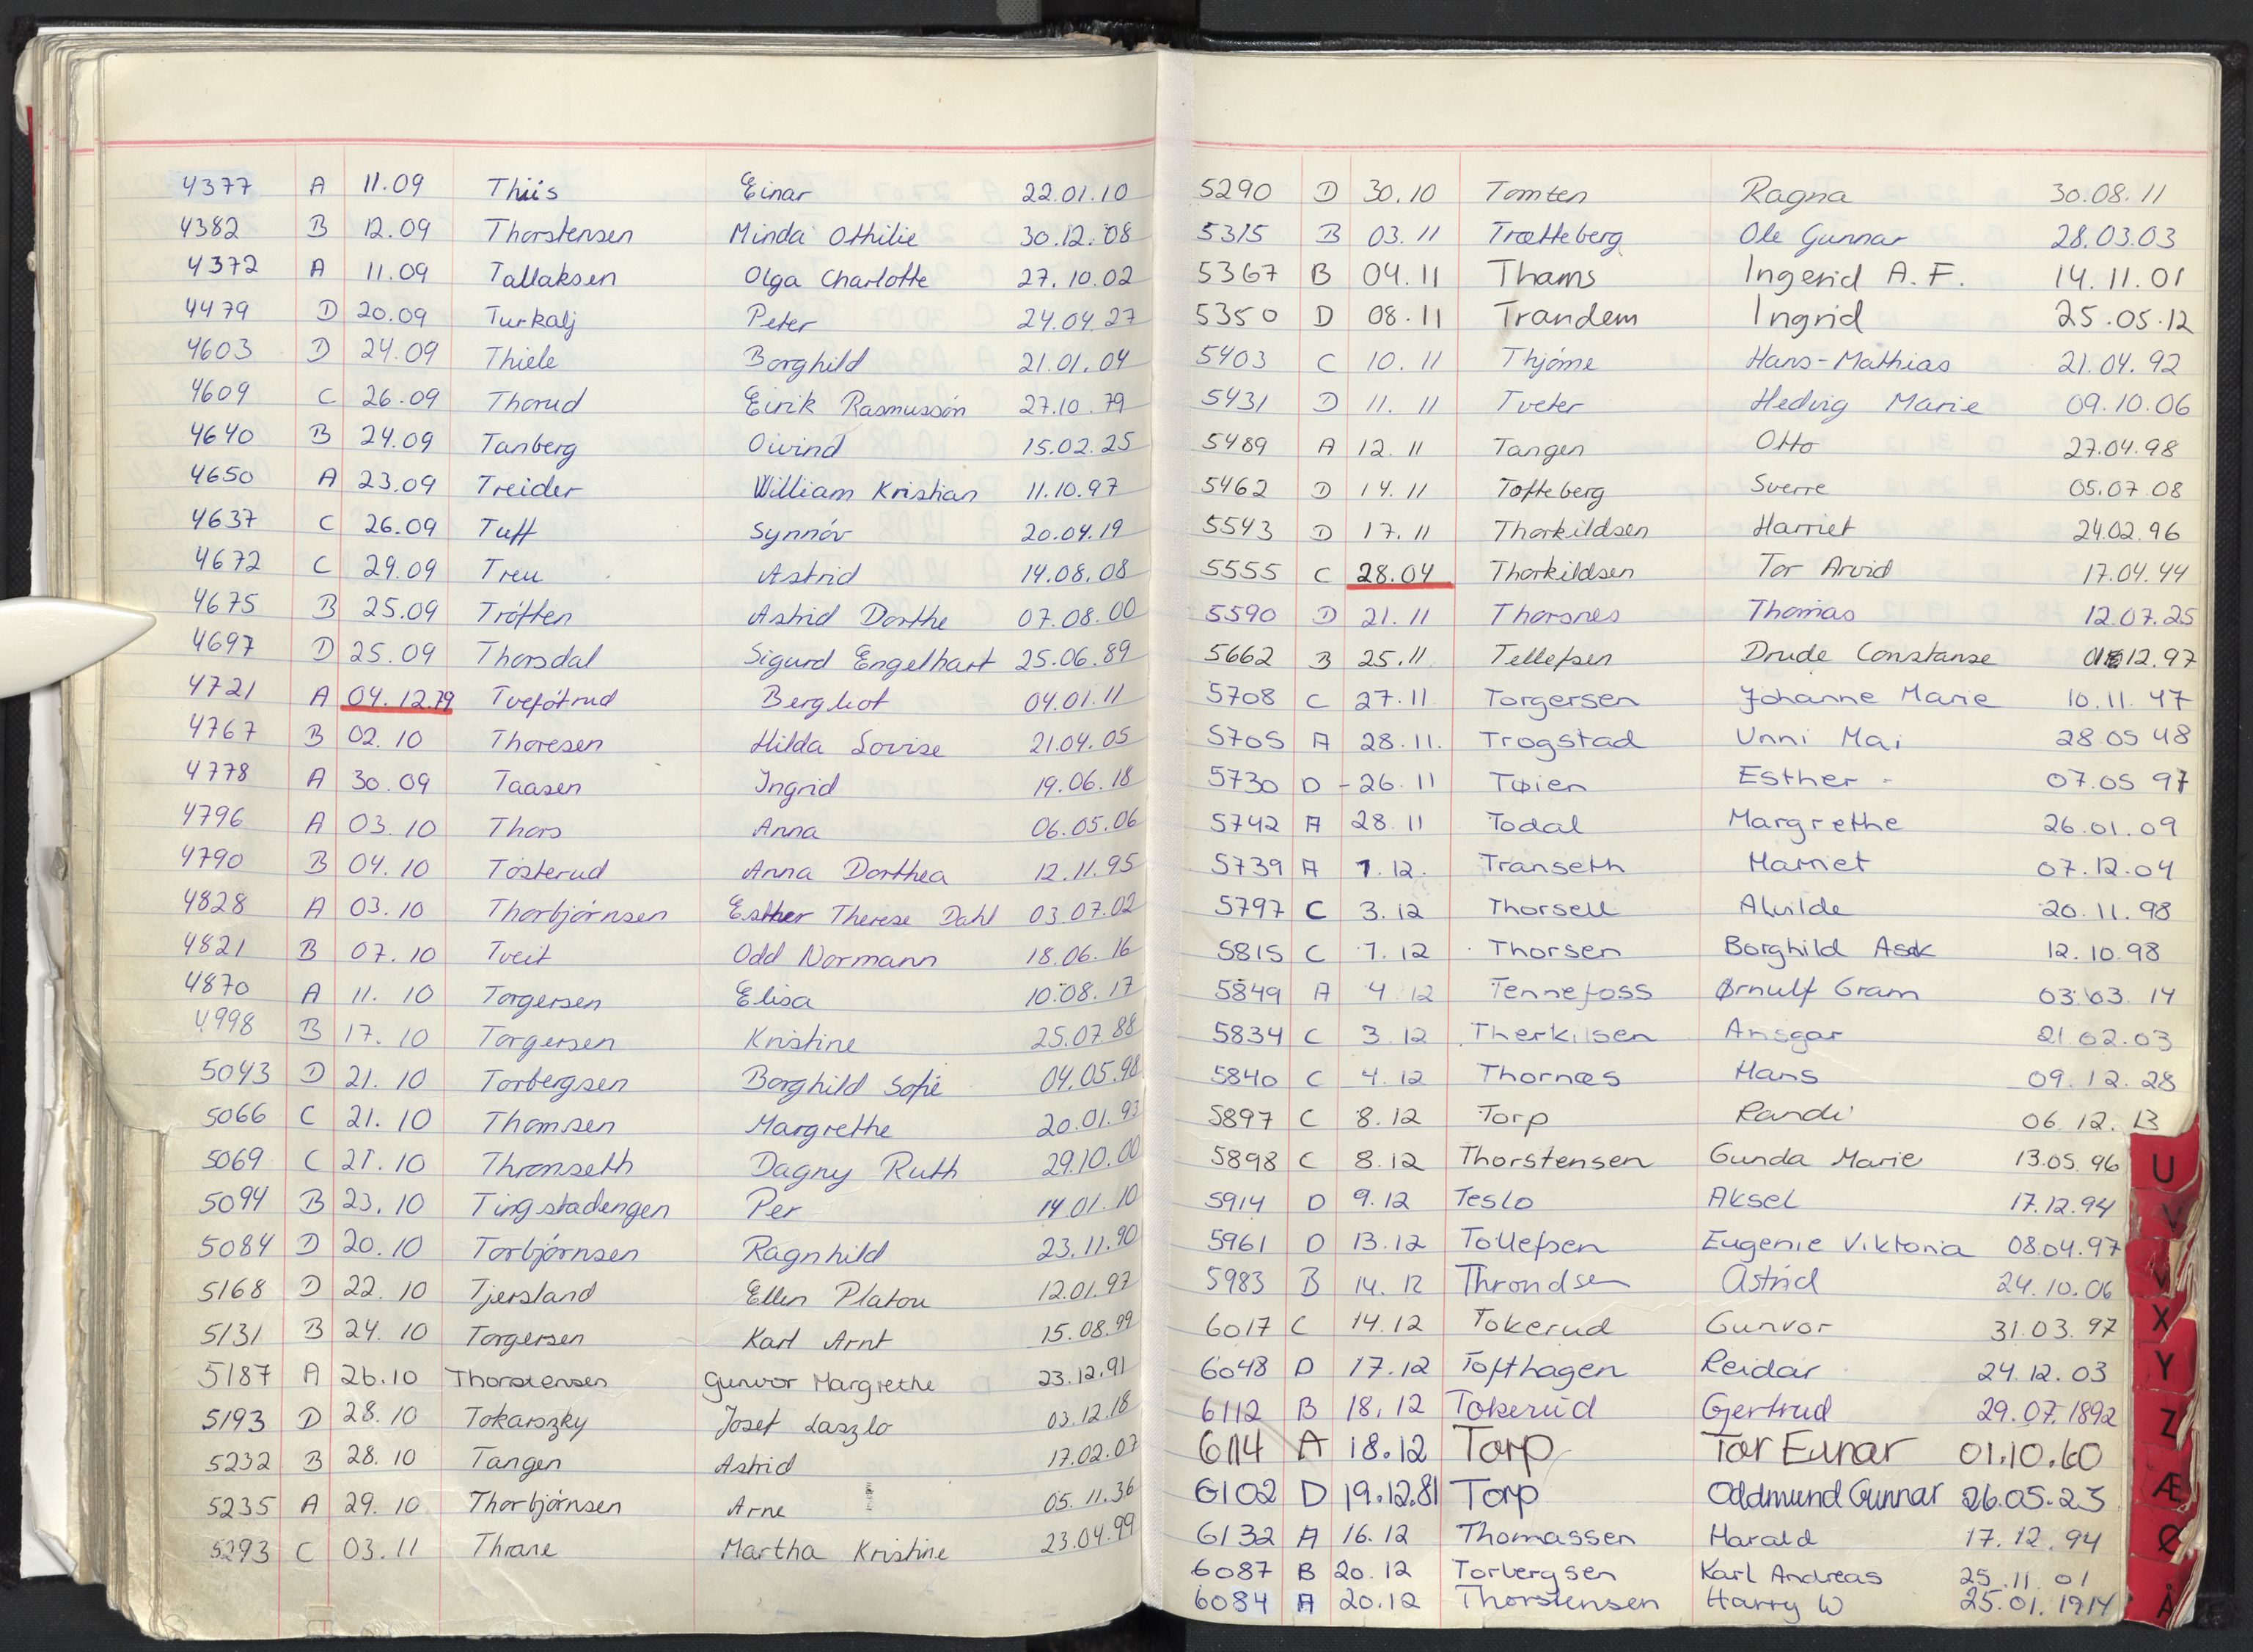 4377 A 11.09 Thiis Einar 22.01.10
4382 B 12.09 Thorstensen Minda Othilie 30.12.08
4372 A 11.09 Tallaksen Olga Charlotte 27.10.02
4479 D 20.09 Turkalj Peter 24.04.27
4603 D 24.09 Thiele Borghild 21.01.04
4609 C 26.09 Thorud Eirik Rasmussón 27.10.79
4640 B 24.09 Tanberg Oivind 15.02.25
4650 A 23.09 Treider William Kristian 11.10.97
4637 C 26.09 Tuff Synnóv 20.04.19
4672 C 29.09 Treu Astrid 14.08.08
4675 B 25.09 Tróften Astrid Dorthe 07.08.00
4697 D 25.09 Thorsdal Sigurd Engelhart 25.06.89
4721 A 04.12.79 Tvefótrud Bergliot 04.01.11
4767 B 02.10 Thoresen Hilda Lovise 21.04.05
4778 A 30.09 Taasen Ingrid 19.06.18
4796 A 03.10 Thors Anna 06.05.06
4790 B 04.10 Tosterud Anna Dorthea 12.11.95
4828 A 03.10 Thorbjórnsen Esther Therese Dahl 03.07.02
4821 B 07.10 Tveit Odd Normann 18.06.16
4870 A 11.10 Torgersen Elisa 10.08.17
4998 B 17.10 Torgersen Kristine 25.07.88
5043 D 21.10 Torbergsen Borghild Sofie 04.05.98
5066 C 21.10 Thomsen Margrethe 20.01.93
5069 C 21.10 Thronseth Dagny Ruth 29.10.00
5094 B 23.10 Tingstadengen Per 14.01.10
5084 D 20.10 Torbjórnsen Ragnhild 23.11.90
5168 D 22.10 Tjersland Ellen Platou 12.01.97
5131 B 24.10 Torgersen Karl Arnt 15.08.99
5187 A 26.10 Thorstensen Gunvor Margrethe 23.12.91
5193 D 28.10 Tokarszky Josef Laszlo 03.12.18
5232 B 28.10 Tangen Astrid 17.02.07
5235 A 29.10 Thorbjórnsen Arne 05.11.36
5293 C 03.11 Thrane Martha Kristine 23.04.99
5290 D 30.10 Tomten Ragna 30.08.11
5315 B 03.11 Trætteberg Ole Gunnar 28.03.03
5367 B 04.11 Thams Ingerid A.F. 14.11.01
5350 D 08.11 Trandem Ingrid 25.05.12
5403 C 10.11 Thjóme Hans-Mathias 21.04.92
5431 D 11.11 Tveter Hedvig Marie 09.10.06
5489 A 12.11 Tangen Otto 27.04.98
5462 D 14.11 Tofteberg Sverre 05.07.08
5543 D 17.11 Thorkildsen Harriet 24.02.96
5555 C 28.04 Thorkildsen Tor Arvid 17.04.44
5590 D 21.11 Thorsnes Thomas 12.07.25
5662 B 25.11 Tellefsen Drude Constanse 12.97
5708 C 27.11 Torgersen Johanne Marie 10.11.47
5705 A 28.11. Trogstad Unni Mai 28.05 48
5730 D - 26.11 Tøien Esther 07.05 97
5742 A 28.11 Todal Margrethe 26.01.09
5739 A 1.12. Transeth Harriet 07.12.04
5797 C 3.12 Thorsell Alvilde 20.11.98
5815 C 7.12 Thorsen Borghild Ask 12.10.98
5849 A 4.12 Tennefoss Ørnulf Gram 03.03.14
5834 C 3.12 Therkilsen Ansgar 21.02.03
5840 C 4.12 Thornæs Hans 09.12.28
5897 C 8.12 Torp Randi 06.12.13
5898 C 8.12 Thorstensen Gunda Marie 13.05.96
5914 D 9.12 Teslo Aksel 17.12.94
5961 D 13.12 Tollefsen Eugenie Viktoria 08.04.97
5983 B 14.12 Throndsen Astrid 24.10.06
6017 C 14.12 Tokerud Gunvor 31.03.97
6048 D 17.12 Tofthagen Reidar 24.12.03
6112 B 18.12 Tokerud Gjertrud 29.07.1892
6114 A 18.12 Torp Tor Einar 01.10.60
6102 D 19.12.81 Torp Oddmund Gunnar 26.05.23
6132 A 16.12 Thomassen Harald 17.12.94
6087 B 20.12 Torbergsen Karl Andreas 25.11.01
6084 A 20.12 Thorstensen Harry W 25.01.1914
U
V
X
Y
Z
Æ
Ø
Å